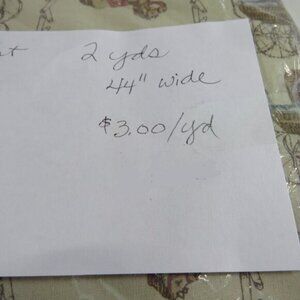 2 yds
44" wide
$3.00/yd